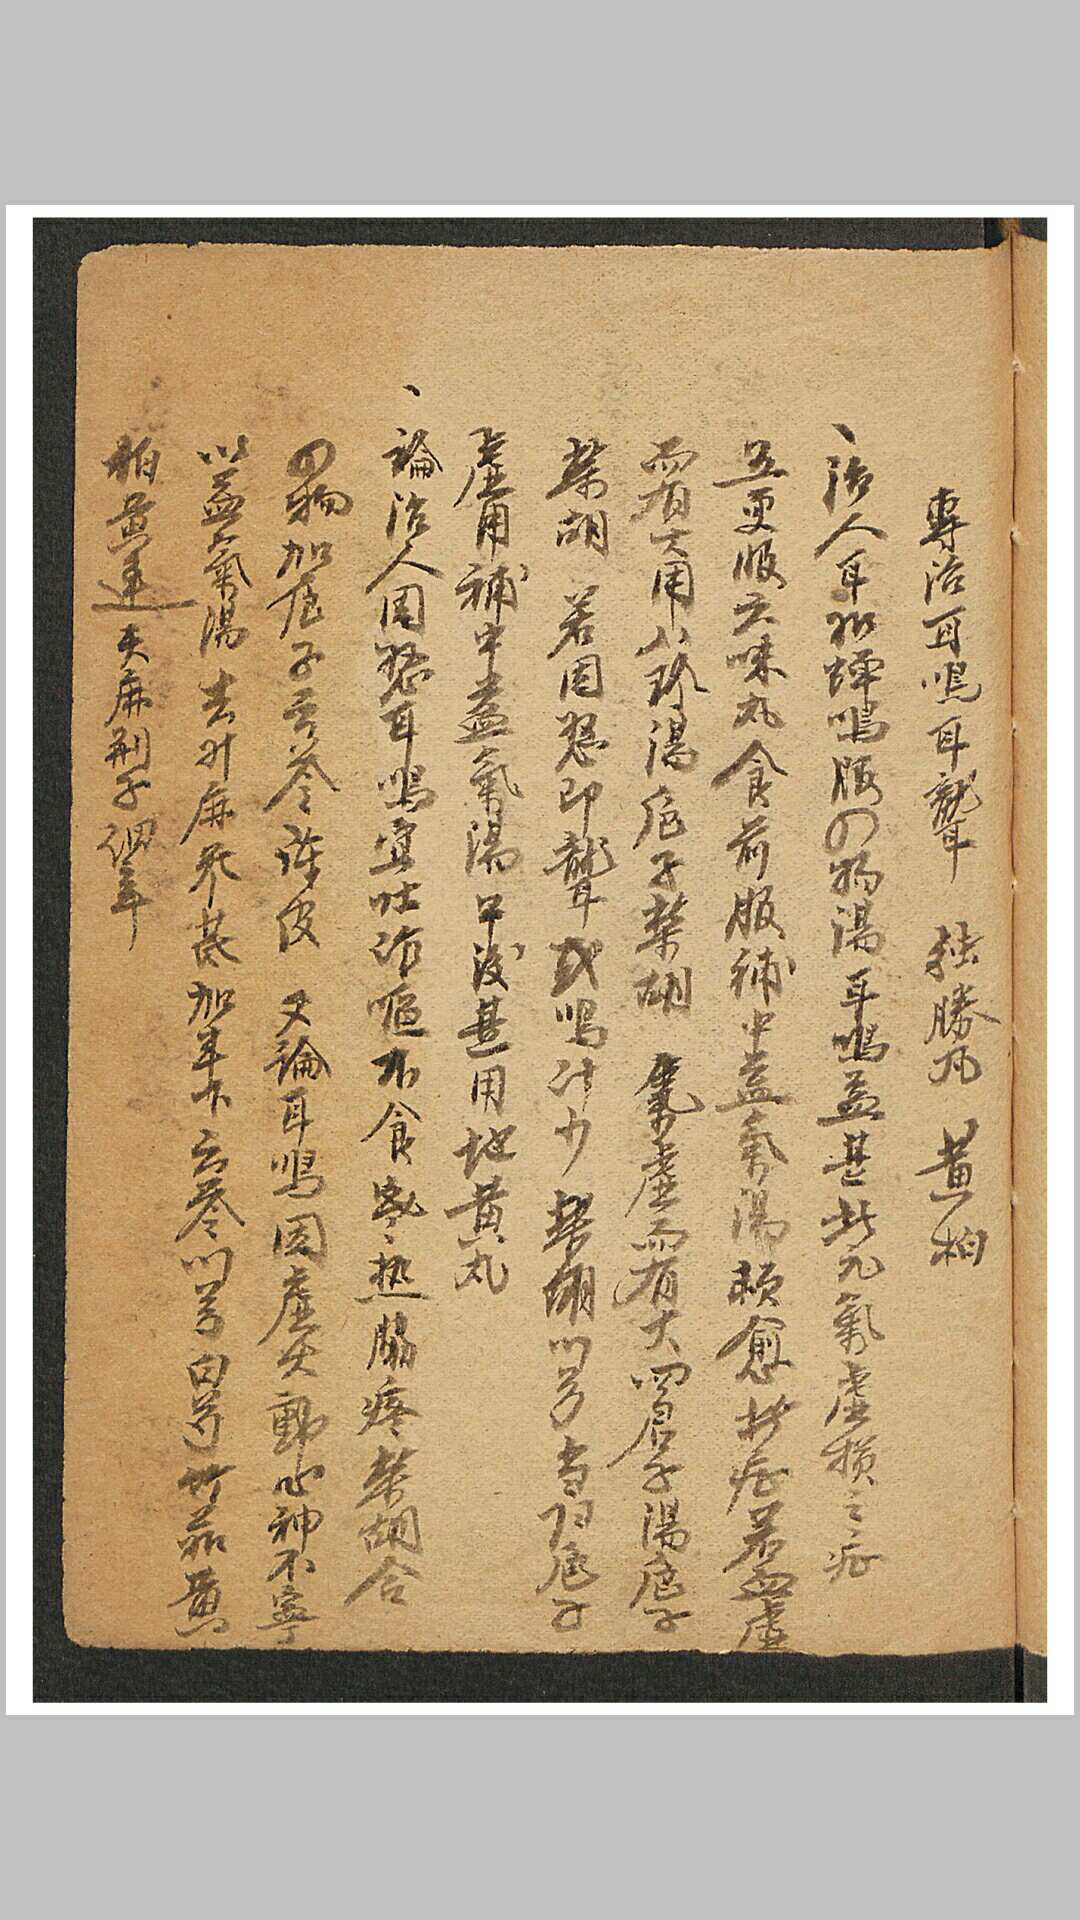 專治耳鳴耳聾 独勝丸 黃柏
、治人耳如蟬鳴服四物湯耳鳴益甚此元氣虛損之症
五更服六味丸食前服補中益氣湯頓愈此症若血虛
而有火用八珍湯 梔子柴胡 氣虛而有火四君子湯梔子
柴胡 若因怒即聾或鳴汁少柴胡川芎當归梔子
虛用補中益氣湯 甚用地黃丸
、論治人因怒耳鳴宜吐 嘔不食寒热脇疼柴胡合
四物加梔子云苓陳皮 又論耳鳴因虛火動心神不寧
以益氣湯去升麻 芪加半下云苓川芎白芍竹茹黃
柏黃連天麻荆子